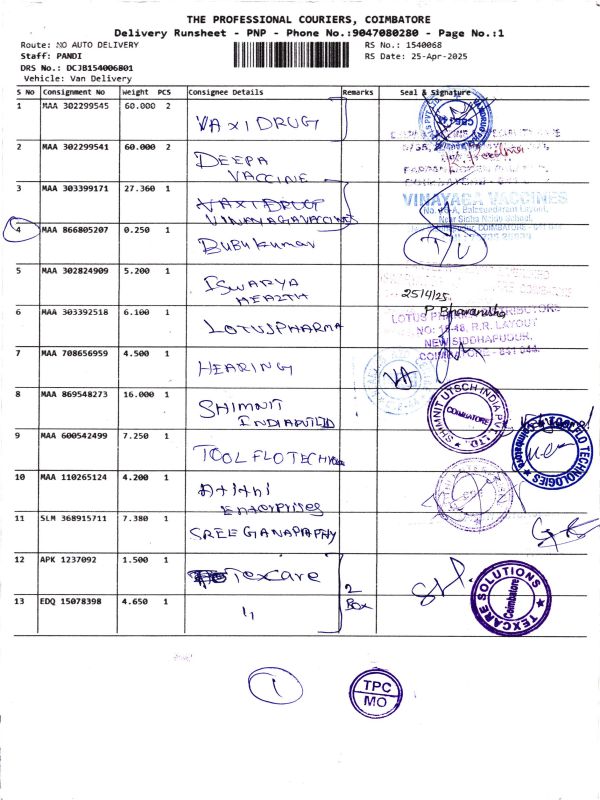 THE PROFESSIONAL COURIERS, COIMBATORE
Delivery Runsheet - PNP - Phone No.:9047080280 - Page No.:1
Route: NO AUTO DELIVERY
RS No.: 1540068
Staff: PANDI
RS Date: 25-Apr-2025
DRS No.: DCJB154006801
Vehicle: Van Delivery
S No Consignment No Weight PCS Consignee Details Remarks Seal & Signature
1 MAA 302299545 60.000 2 VAXIDRUG
2 MAA 302299541 60.000 2 DEEPA
VACCINE
3 MAA 303399171 27.360 1 VAXIDRUG
VINAYAGAVACCINES
VINAYAGA VACCINES
4 MAA 866805207 0.250 1 Bubukumar
5 MAA 302824909 5.200 1 ISWARYA
HEALTH
25/4/25
6 MAA 303392518 6.100 1 LOTUSPHARMA
P. Bharanisha
LOTUS
R.R. LAYOUT
NEW SIDDHAPUDUR,
7 MAA 708656959 4.500 1 HEARING
VA
8 MAA 869548273 16.000 1 SHIMNIT
INDIAPVTLTD
SHIMNIT UTSCH INDIA PVT. LTD.
COIMBATORE
9 MAA 600542499 7.250 1 TOOLFLOTECH
TOOL FLO TECHNOLOGIES
Coimbatore
10 MAA 110265124 4.200 1 Atithi
Enterprises
11 SLM 368915711 7.380 1 SREE GANAPATHY
12 APK 1237092 1.500 1 Texcare
2
Box
TEXCARE SOLUTIONS
Coimbatore
13 EDQ 15078398 4.650 1 "
1
TPC
MO